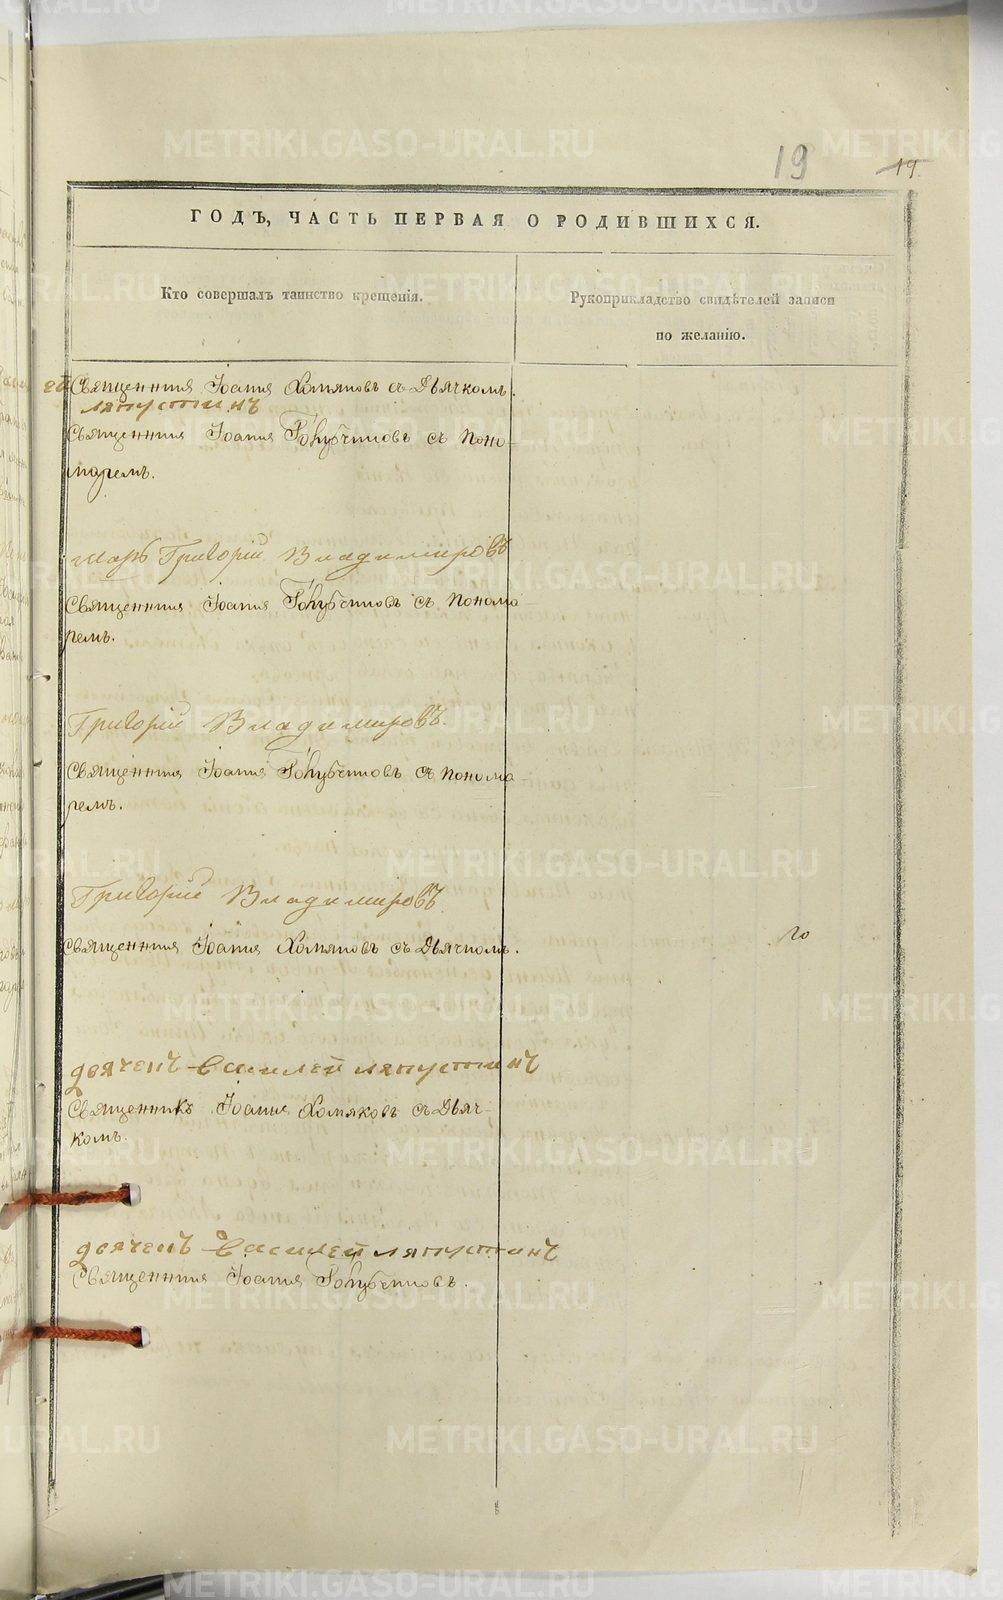 19
19.
ГОДЪ, ЧАСТЬ ПЕРВАЯ О РОДИВШИХСЯ.
Кто совершалъ таинство крещенія.
Рукоприкладство свидѣтелей записи
по желанію.
Священникъ Іоаннъ Хомяковъ съ Дьячкомъ.
ляпустинъ
Священникъ Іоаннъ Голубчиковъ съ Поно-
маремъ.
Григорій Владимировъ
Священникъ Іоаннъ Голубчиковъ съ Понома-
ремъ.
Григорій Владимировъ.
Священникъ Іоаннъ Голубчиковъ съ Понома-
ремъ.
Григорій Владимировъ
Священникъ Іоаннъ Хомяковъ съ Дьячкомъ.
дьячекъ василей ляпустинъ
Священникъ Іоаннъ Хомяковъ съ Дьяч-
комъ.
дьячекъ василей ляпустинъ
Священникъ Іоаннъ Голубчиковъ.
METRIKI.GASO-URAL.RU